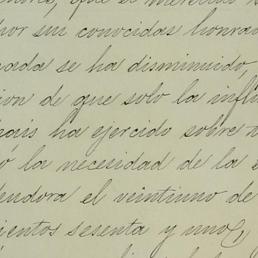 que el
por sus conocidas honrad
cada se ha disminuido,
ion de que solo la influ
pais ha ejercido sobre
o la necesidad de la
dendora el veintiuno de
ientos sesenta y uno